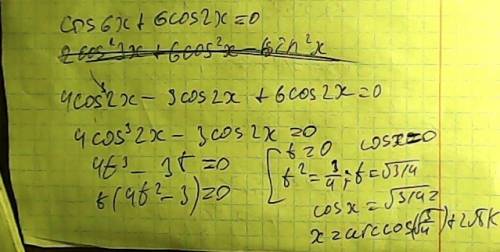 cos6x + 6cos2x = 0
2cos²3x + 6cos²x - 6sin²x
4cos³2x - 3cos2x + 6cos2x = 0
4cos³2x - 3cos2x = 0
4t³ - 3t = 0
t(4t² - 3) = 0
t = 0
t² = 3/4; t = √3/4
cosx = 0
cosx = √3/4 =
x = arccos(√3/4) + 2πk